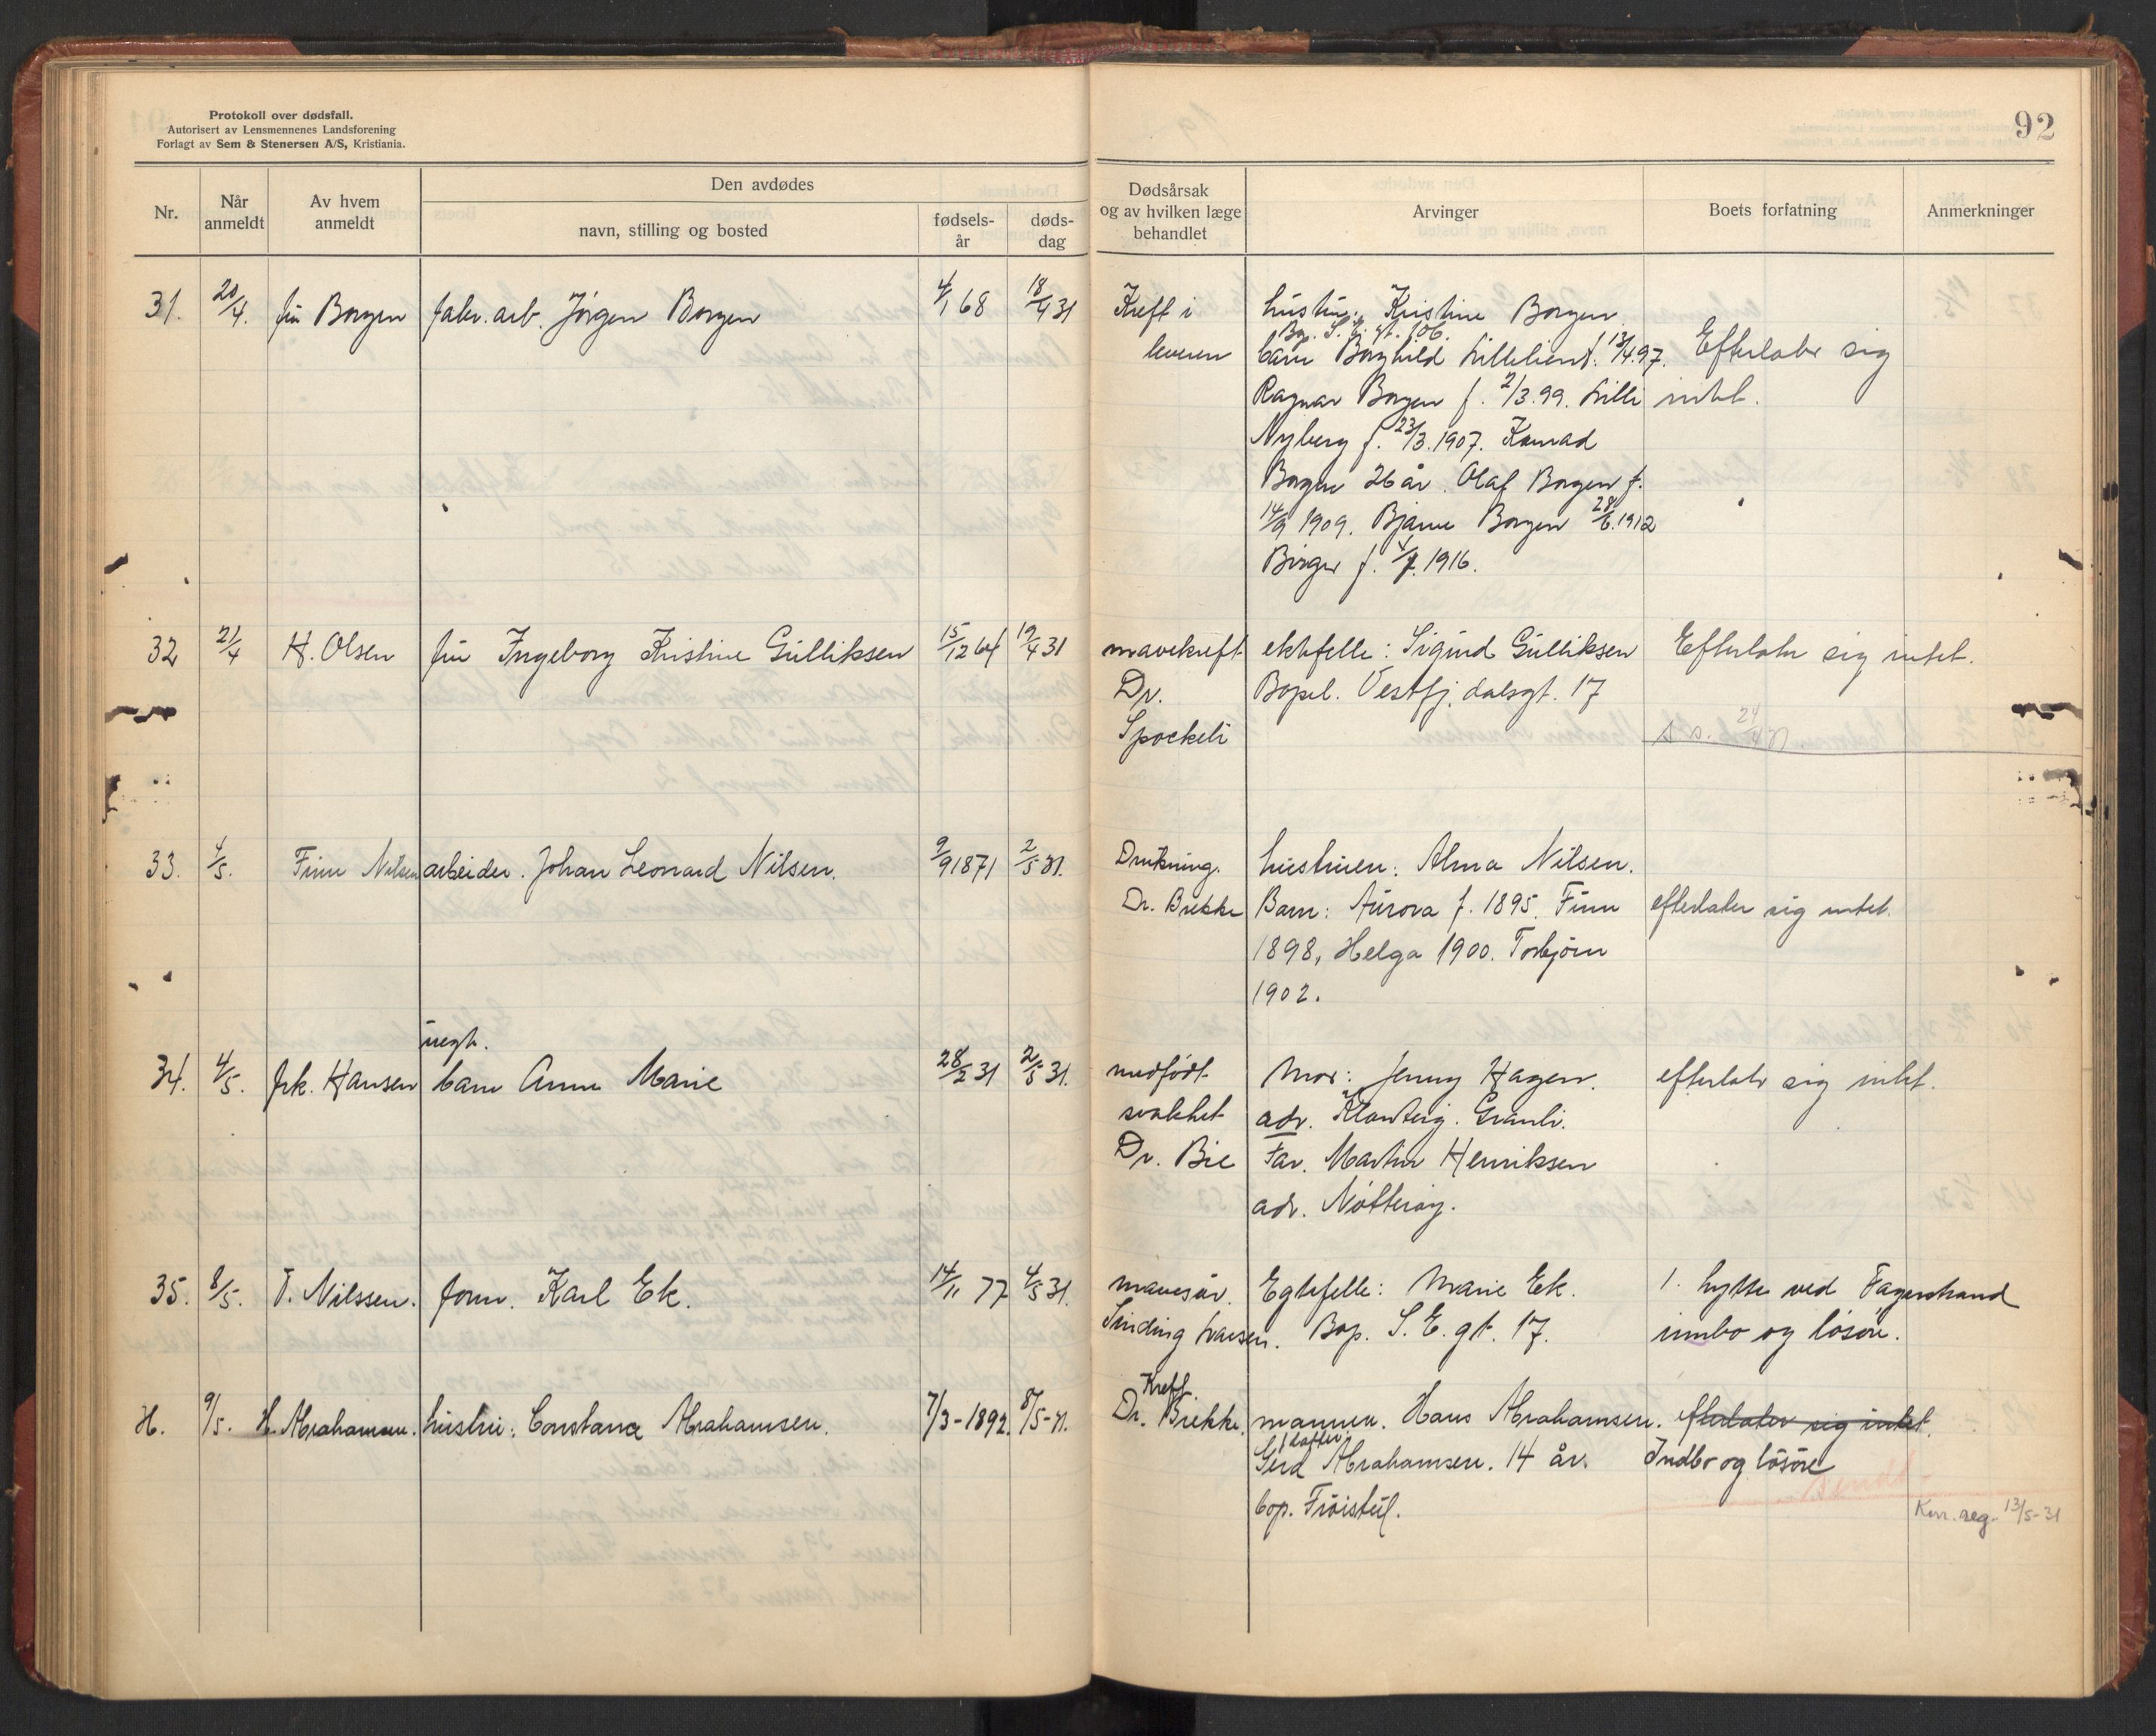 Protokoll over dødsfall.
Autorisert av Lensmennenes Landsforening
Forlagt av Sem & Stenersen A/S, Kristiania.
92
Nr.
Når anmeldt
Av hvem anmeldt
Den avdødes
navn, stilling og bosted
fødsels-år
døds-dag
Dødsårsak og av hvilken læge behandlet
Arvinger
Boets forfatning
Anmerkninger
31. 20/4. fru Borgen fabr. arb. Jörgen Borgen 4/1 68 18/4 31
Kreft i leveren
hustru. Kristine Borgen
barn Borghild Lillelient. 13/4.97.
Ragnar Borgen f. 2/3.99. Lilli
Nyberg f. 23/3.1907. Konrad
Borgen 26 år. Olaf Borgen f.
14/9 1909. Bjarne Borgen 28/6.1912
Birger f. 1916.
Efterlater sig
intet.
32 21/4 H. Olsen fru Ingeborg Kristine Gulliksen 15/12 64 19/4 31
mavekreft
Dr.
Spockeli
ektefelle: Sigurd Gulliksen
Bopel. Vestfj. dalsgt. 17
Efterlater sig intet.
33. 4/5. Finn Nilsen arbeider. Johan Leonard Nilsen. 9/9 1871 2/5 31.
Drukning.
Dr. Brekke
hustruen. Alma Nilsen.
Barn: Aurora f. 1895. Finn
1898, Helga 1900. Torbjörn
1902.
efterlater sig intet.
uegt.
34. 4/5. frk. Hansen barn Anne Marie 28/2 31 2/5 31.
medfödt
svakhet
Dr. Bie
Mor: Jenny Hagen.
adr. Granli.
Far. Martin Henriksen
adr. Nötteröy.
efterlater sig intet.
35. 8/5. T. Nilssen. form. Karl Ek. 14/11 77 4/5 31.
mavesår.
Sinding Larsen.
Egtefelle: Marie Ek.
Bop. S. E. gt. 17.
1. hytte ved Fagerstrand
innbo og lösöre.
H. 9/5. H. Abrahamsen. hustru: Constance Abrahamsen. 7/3-1892. 8/5-31.
Kreft.
Dr. Brekke.
mannen. Hans Abrahamsen.
datter.
Gerd Abrahamsen. 14 år.
bop. Fröistul.
efterlater sig intet.
Indbo og lösöre
sendt
Korr. reg. 13/5-31